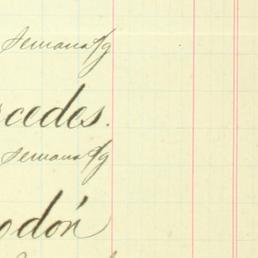 Semana fg
cedes.
Semana fg
odón